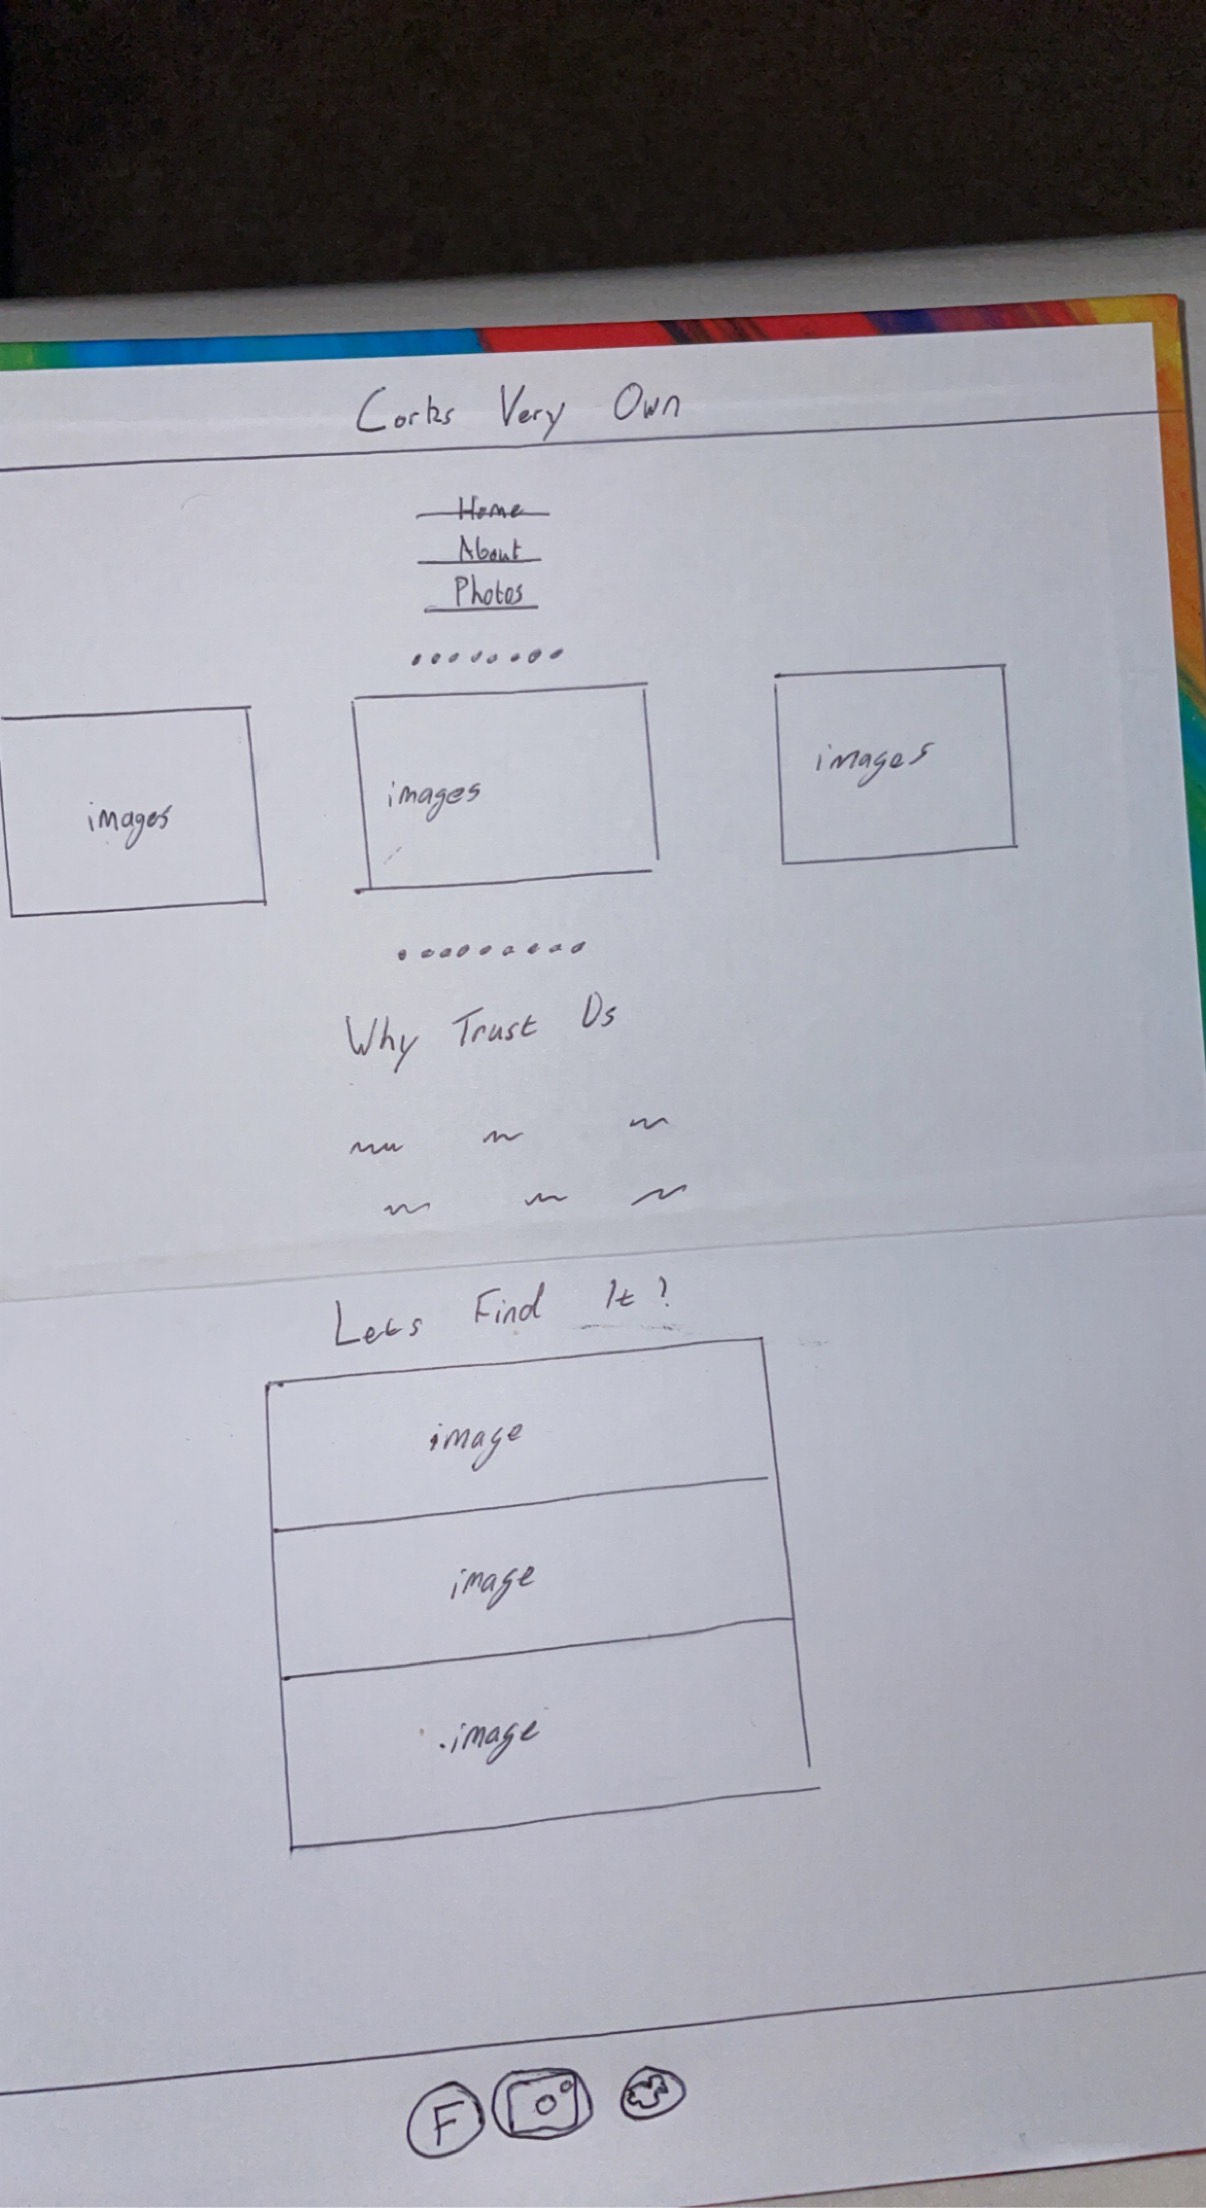 Corks Very Own
Home
About
Photos
images images images
Why Trust Us
Lets Find It?
image
image
image
F